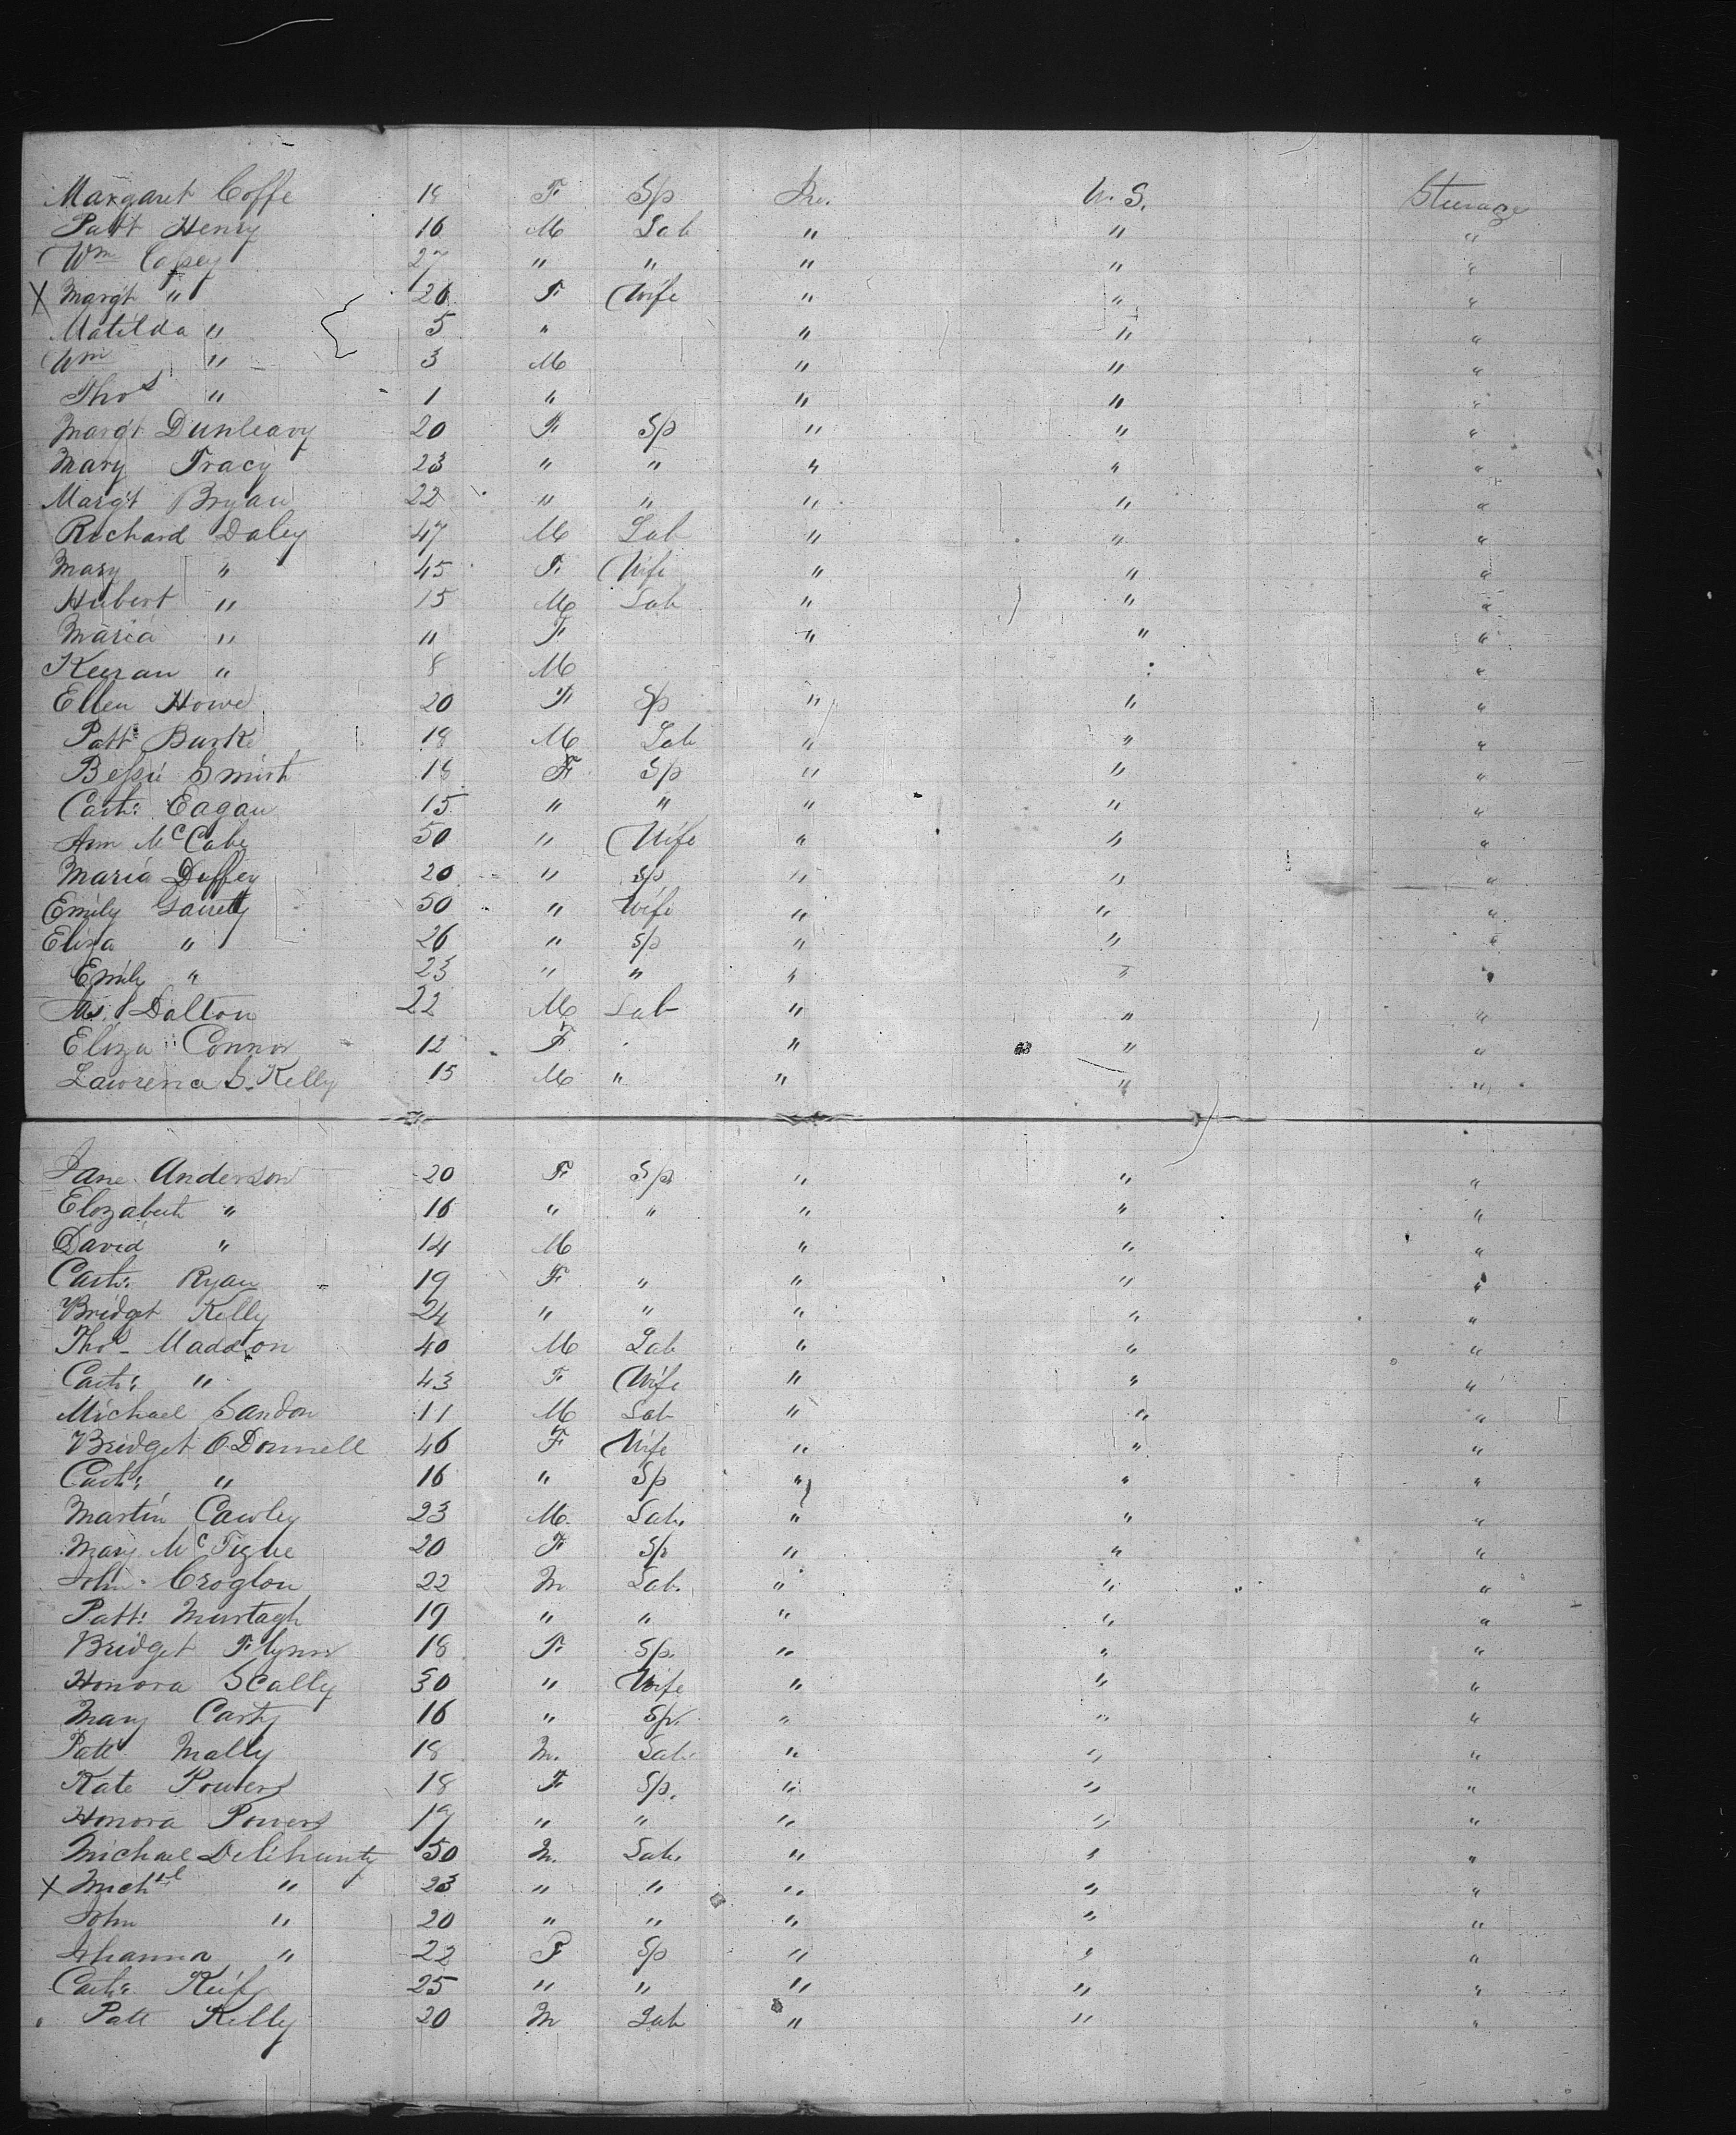 Margaret Coffe 18 F Sp Ire. U. S. Steerage
Patt Henry 16 M Lab " " "
Wm Casey 27 " " " " "
X Margt " 26 F Wife " " "
Matilda " 5 " " " "
Wm " 3 M " " "
Thos " 1 " " " "
Margt Dunleavy 20 F Sp " " "
Mary Tracy 23 " " " " "
Margt Bryan 22 " " " " "
Richard Daley 47 M Lab " " "
Mary " 45 F Wife " " "
Hubert " 15 M Lab " " "
Maria " 11 F " " "
Keeran " 8 M " "
Ellen Howe 20 F Sp " " "
Patt Burke 18 M Lab " " "
Bessie Smith 18 F Sp " " "
Cath: Eagan 15 " " " " "
Ann McCabe 50 " Wife " " "
Maria Duffey 20 " Sp " " "
Emily Garrety 50 " Wife " " "
Eliza " 26 " Sp " " "
Emily " 23 " " " " "
Dalton 22 M Lab " " "
Eliza Connor 12 F " " "
Lawrence S. Kelly 15 M " " " "
Jane Anderson 20 F Sp " " "
Elozabeth " 16 " " " " "
David " 14 M " " "
Cath: Ryan 19 F " " " "
Bridget Kelly 24 " " " " "
Thos Maddon 40 M Lab " " "
Cath: " 43 F Wife " " "
Michael Landon 11 M Lab " " "
Bridget O.Donnell 46 F Wife " " "
Cath: " 16 " Sp " " "
Martin Cawley 23 M. Lab. " " "
Mary McTigue 20 F Sp " " "
John Croglon 22 M Lab. " " "
Patt: Murtagh 19 " " " " "
Bridget Flynn 18 F Sp. " " "
Honora Scally 30 " Wife " " "
Mary Carty 16 " Sp. " " "
Patt Mally 18 M. Lab. " " "
Kate Powers 18 F Sp. " " "
Honora Powers 19 " " " " "
Michael Delihunty 50 M. Lab. " " "
X Michael " 23 " " " " "
John " 20 " " " " "
Johanna " 22 F Sp " " "
Cath: Keife 25 " " " " "
Patt Kelly 20 M Lab " " "